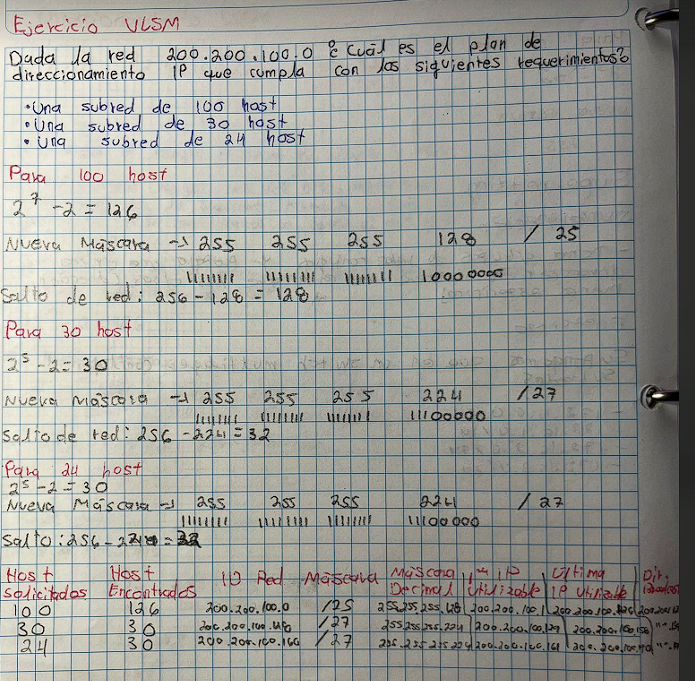 Ejercicio VLSM
Dada la red 200.200.100.0 ¿Cuál es el plan de
direccionamiento IP que cumpla con los siguientes requerimientos?
• Una subred de 100 host
• Una subred de 30 host
• Una subred de 24 host
Para 100 host
2^7 - 2 = 126
Nueva Máscara → 255 255 255 128 / 25
11111111 11111111 11111111 10000000
Salto de red: 256 - 128 = 128
Para 30 host
2^5 - 2 = 30
Nueva Máscara → 255 255 255 224 /27
11111111 11111111 11111111 11100000
Salto de red: 256 - 224 = 32
Para 24 host
2^5 - 2 = 30
Nueva Máscara → 255 255 255 224 / 27
11111111 11111111 11111111 11100000
Salto: 256 - 224 = 32
Host Host ID Red Máscara Máscara 1era IP Última Dir.
Solicitados Encontrados Decimal Utilizable IP Utilizable
100 126 200.200.100.0 /25 255.255.255.128 200.200.100.1 200.200.100.126
30 30 200.200.100.128 /27 255.255.255.224 200.200.100.129 200.200.100.158
24 30 200.200.100.160 /27 255.255.255.224 200.200.100.161